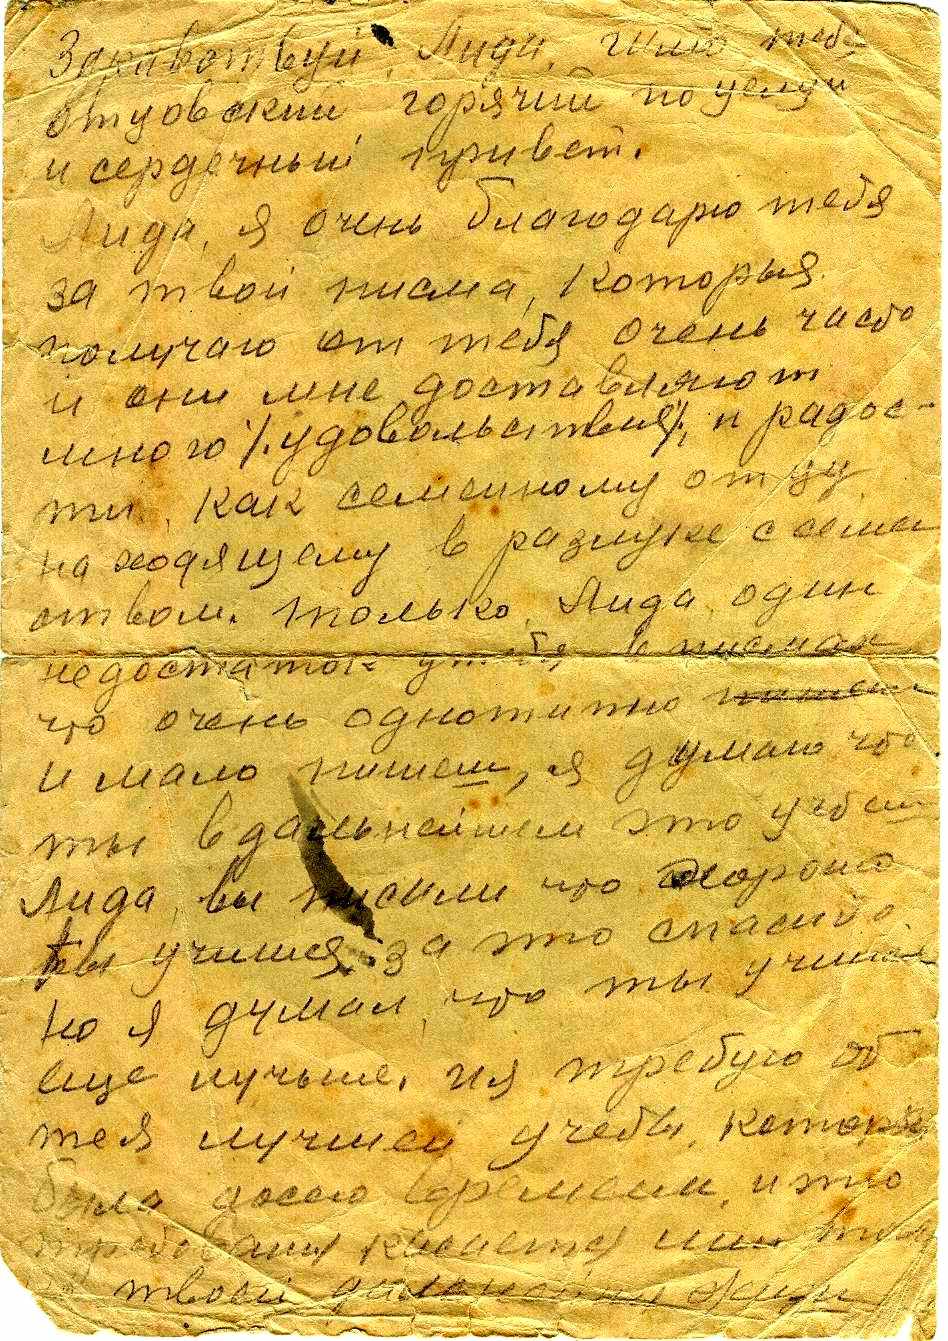 Здравствуй, Лида, шлю тебе
отцовский горячий поцелуй
и сердечный привет.
Лида, я очень благодарю тебя
за твои писма, которыя
получаю от тебя очень часто
и они мне доставляют
много /удовольствия/, и радос-
ти, как семейному отцу
находящему в разлуке с семей
ством. только, Лида, один
недостаток у тебя в писмах
что очень однотипно пишеш
и мало пишеш, я думаю что
ты в дальнейшем это учтеш
Лида, вы писали что хорошо
ты учишся, за это спасибо.
но я думал, что ты учишся
еще лучьше. и я требую от
тебя лучшей учебы, которая
была до сего времени, и это
требования касается
твоей дальнейшей жизни